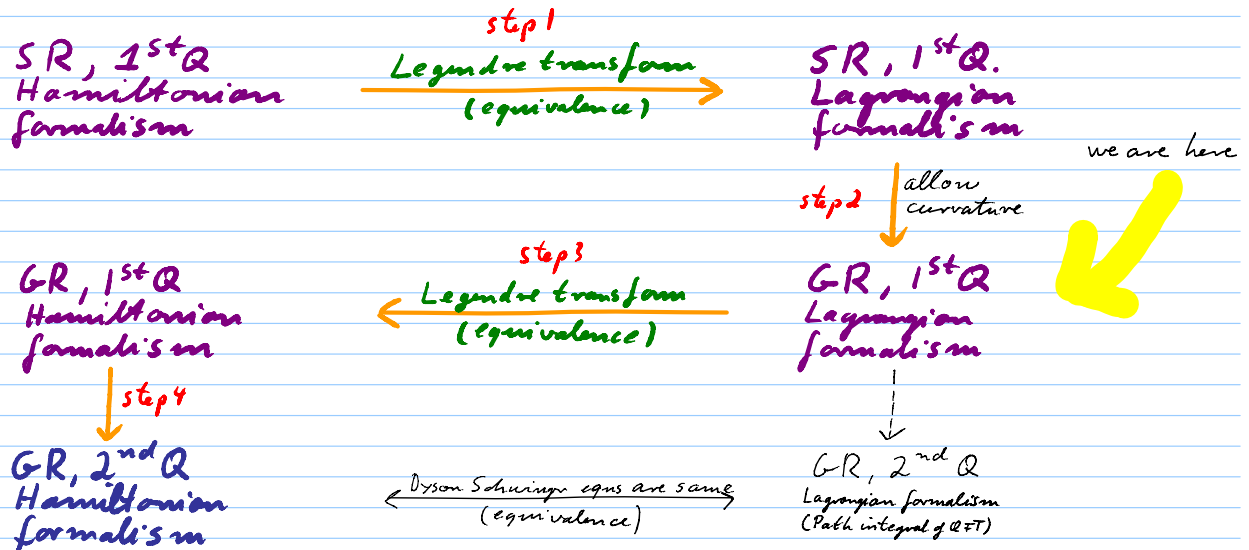 step 1
SR, 1st Q
Hamiltonian
formalism
Legendre transform
(equivalence)
SR, 1st Q.
Lagrangian
formalism
we are here
step 2
allow
curvature
GR, 1st Q
Hamiltonian
formalism
step 3
Legendre transform
(equivalence)
GR, 1st Q
Lagrangian
formalism
step 4
GR, 2nd Q
Hamiltonian
formalism
Dyson Schwinger eqns are same
(equivalence)
GR, 2nd Q
Lagrangian formalism
(Path integral of QFT)